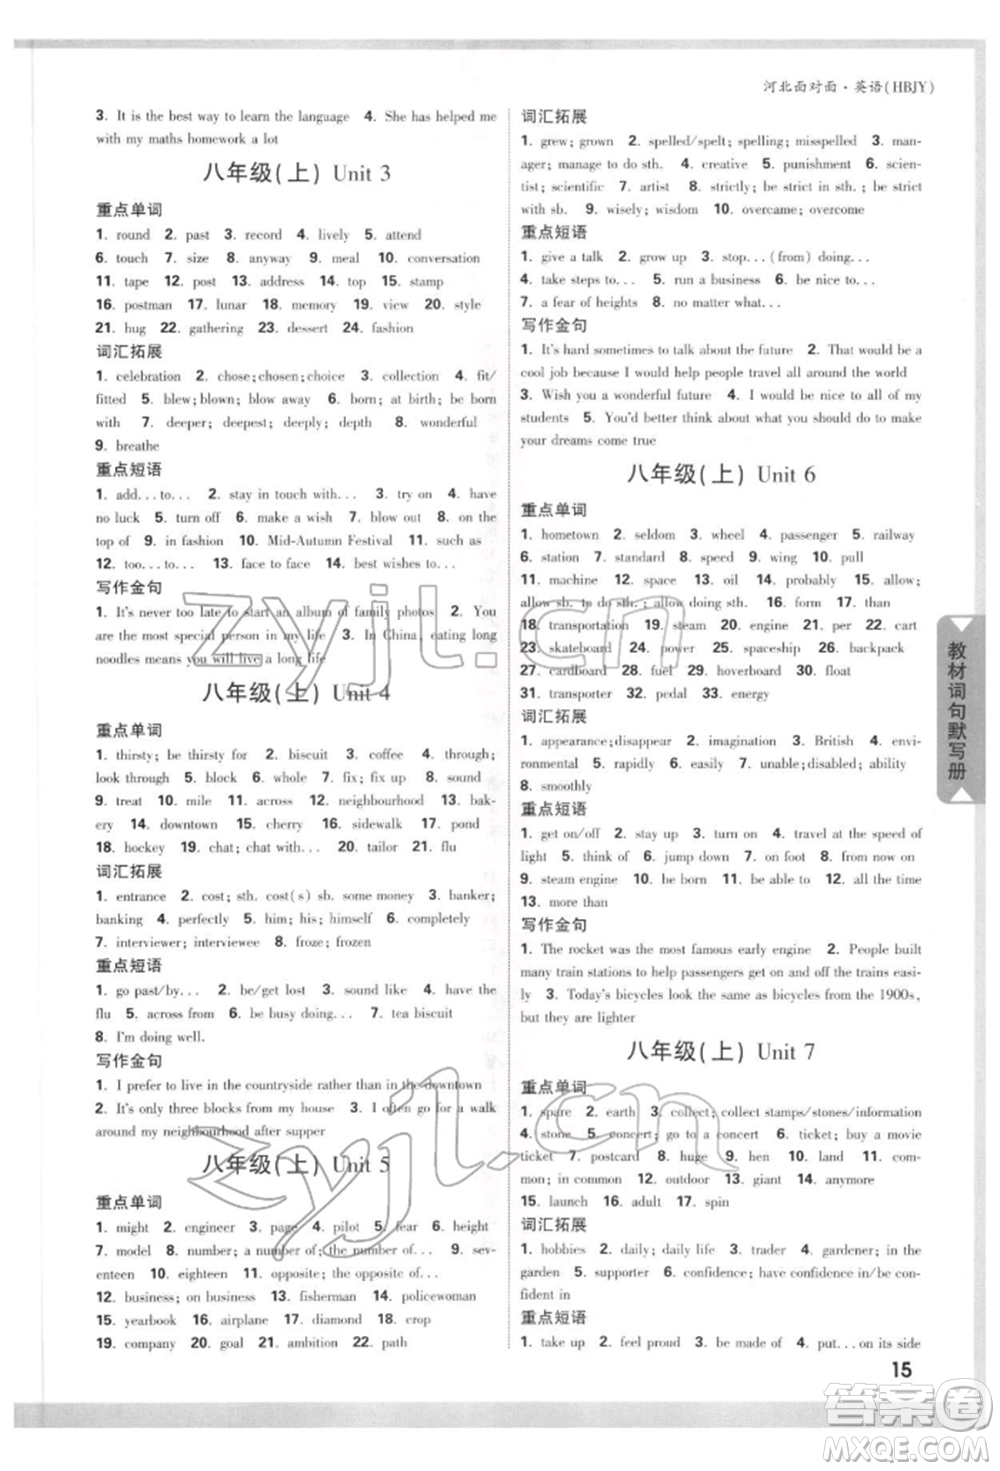 河北面对面·英语(HBJY)
3. It is the best way to learn the language 4. She has helped me
with my maths homework a lot
八年级(上) Unit 3
重点单词
1. round 2. past 3. record 4. lively 5. attend
6. touch 7. size 8. anyway 9. meal 10. conversation
11. tape 12. post 13. address 14. top 15. stamp
16. postman 17. lunar 18. memory 19. view 20. style
21. hug 22. gathering 23. dessert 24. fashion
词汇拓展
1. celebration 2. chose;chosen;choice 3. collection 4. fit/
fitted 5. blew;blown; blow away 6. born; at birth; be born
with 7. deeper; deepest; deeply; depth 8. wonderful
9. breathe
重点短语
1. add...to... 2. stay in touch with... 3. try on 4. have
no luck 5. turn off 6. make a wish 7. blow out 8. on the
top of 9. in fashion 10. Mid-Autumn Festival 11. such as
12. too...to... 13. face to face 14. best wishes to...
写作金句
1. It's never too late to start an album of family photos 2. You
are the most special person in my life 3. In China, eating long
noodles means you will live a long life
八年级(上) Unit 4
重点单词
1. thirsty; be thirsty for 2. biscuit 3. coffee 4. through;
look through 5. block 6. whole 7. fix; fix up 8. sound
9. treat 10. mile 11. across 12. neighbourhood 13. bak-
ery 14. downtown 15. cherry 16. sidewalk 17. pond
18. hockey 19. chat; chat with 20. tailor 21. flu
词汇拓展
1. entrance 2. cost; sth. cost(s) sb. some money 3. banker;
banking 4. perfectly 5. him; his; himself 6. completely
7. interviewer; interviewee 8. froze; frozen
重点短语
1. go past/by... 2. be/get lost 3. sound like 4. have the
flu 5. across from 6. be busy doing sth. 7. tea biscuit
8. I'm doing well.
写作金句
1. I prefer to live in the countryside rather than in the downtown
2. It's only three blocks from my house 3. I often go for a walk
around my neighbourhood after supper
八年级(上) Unit 5
重点单词
1. might 2. engineer 3. page 4. pilot 5. fear 6. height
7. model 8. number; a number of; the number of... 9. sev-
enteen 10. eighteen 11. opposite; the opposite of...
12. business; on business 13. fisherman 14. policewoman
15. yearbook 16. airplane 17. diamond 18. crop
19. company 20. goal 21. ambition 22. path
词汇拓展
1. grew; grown 2. spelled/spelt; spelling; misspelled 3. man-
ager; manage to do sth. 4. creative 5. punishment 6. scien-
tist; scientific 7. artist 8. strictly; be strict in sth.; be strict
with sb. 9. wisely; wisdom 10. overcame; overcome
重点短语
1. give a talk 2. grow up 3. stop...(from) doing...
4. take steps to... 5. run a business 6. be nice to...
7. a fear of heights 8. no matter what...
写作金句
1. It's hard sometimes to talk about the future 2. That would be a
cool job because I would help people travel all around the world
3. Wish you a wonderful future 4. I would be nice to all of my
students 5. You'd better think about what you should do to make
your dreams come true
八年级(上) Unit 6
重点单词
1. hometown 2. seldom 3. wheel 4. passenger 5. railway
6. station 7. standard 8. speed 9. wing 10. pull
11. machine 12. space 13. oil 14. probably 15. allow;
allow sb. to do sth.; allow doing sth. 16. former 17. than
18. transportation 19. steam 20. engine 21. per 22. car
23. skateboard 24. power 25. spaceship 26. backpack
27. cardboard 28. fuel 29. hoverboard 30. float
31. transporter 32. pedal 33. energy
词汇拓展
1. appearance; disappear 2. imagination 3. British 4. envi-
ronmental 5. rapidly 6. easily 7. unable; disabled; ability
8. smoothly
重点短语
1. get on/off 2. stay up 3. turn on 4. travel at the speed of
light 5. think of 6. jump down 7. on foot 8. from now on
9. steam engine 10. be born 11. be able to 12. all the time
13. more than
写作金句
1. The rocket was the most famous early engine 2. People built
many train stations to help passengers get on and off the trains easi-
ly 3. Today's bicycles look the same as bicycles from the 1900s,
but they are lighter
八年级(上) Unit 7
重点单词
1. spare 2. earth 3. collect; collect stamps/stones/information
4. stone 5. concert; go to a concert 6. ticket; buy a movie
ticket 7. postcard 8. huge 9. hen 10. land 11. com-
mon; in common 12. outdoor 13. giant 14. million
15. launch 16. adult 17. spin
词汇拓展
1. hobbies 2. daily; daily life 3. trader 4. gardener; in the
garden 5. supporter 6. confidence; have confidence in/be con-
fident in
重点短语
1. take up 2. feel proud 3. be made of 4. put...on its side
教材词句默写册
15
zyjl.cn
zyjl.cn
答案圈
MXQE.COM